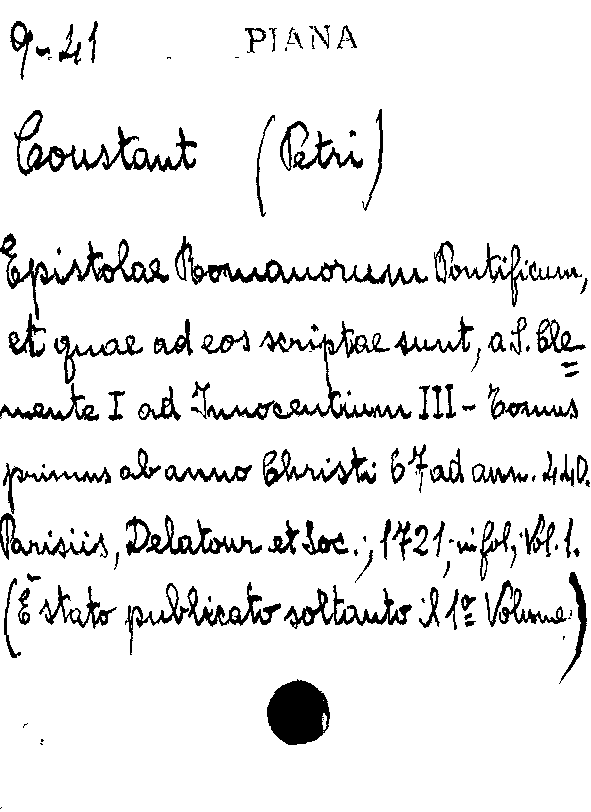 9-41 PIANA
Coustant (Petri)
Epistolae Romanorum Pontificum,
et quae ad eos scriptae sunt, a S. Cle=
mente I ad Innocentium III - Tomus
primus ab anno Christi 67 ad ann. 440.
Parisiis, Delatour et Soc.; 1721; in fol; Vol. 1.
(È stato publicato soltanto il 1º Volume)